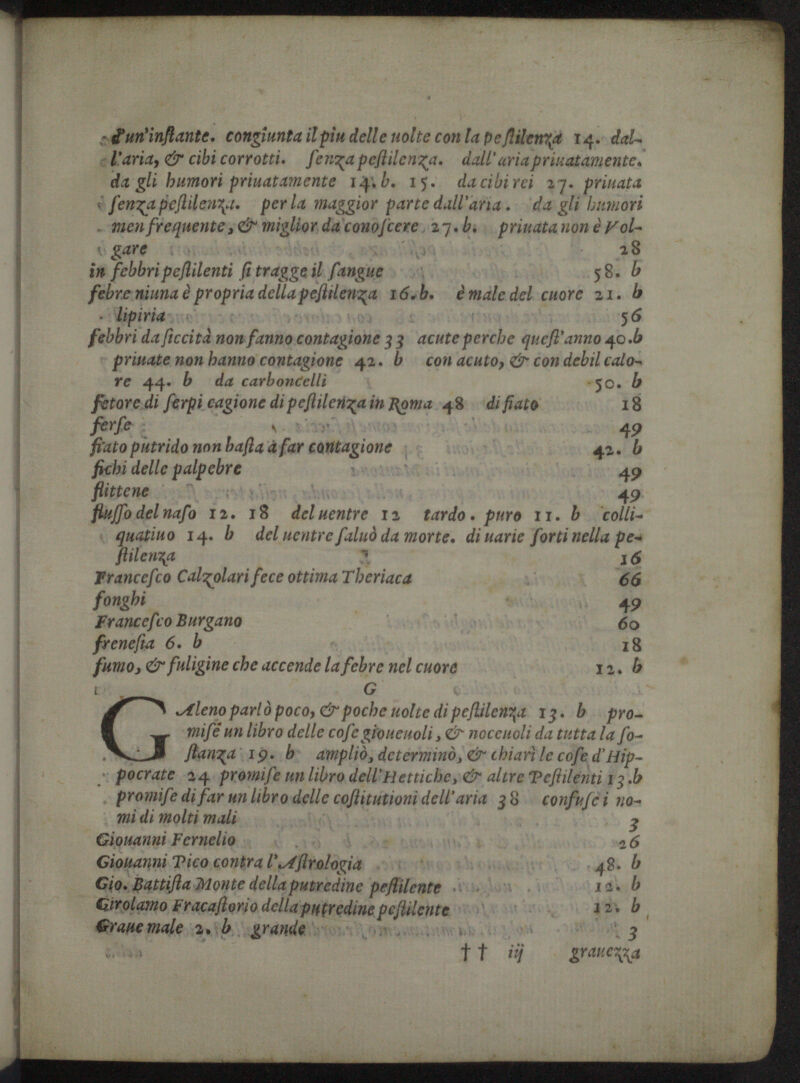 d'un'instante. congiunta il piu delle uolte con la pestilenza 14. dal-
l'aria, & cibi corrotti. senza pestilenza. dall'aria priuatamente.
da gli humori priuatamente 14. b. 15. da cibi rei 27. priuata
senza pestilenza. per la maggior parte dall'aria. da gli humori
men frequente, & miglior da conoscere 27. b. priuata non è Vol-
gare 28
in febbri pestilenti si tragge il sangue 58. b
febre niuna è propria della pestilenza 16. b. è male del cuore 21. b
lipiria 56
febbri da siccità non fanno contagione 33 acute perche quest'anno 40.b
priuate non hanno contagione 42. b con acuto, & con debil calo-
re 44. b da carboncelli 50. b
fetore di serpi cagione di pestilenza in Roma 48 di fiato 18
ferse 49
fiato putrido non basta à far contagione 42. b
fichi delle palpebre 49
flittene 49
flusso del naso 12. 18 del uentre 12 tardo. puro 11. b colli-
quatiuo 14. b del uentre saluò da morte. di uarie sorti nella pe-
stilenza 16
Francesco Calzolari fece ottima Theriaca 66
fonghi 49
Francesco Burgano 60
frenesia 6. b 18
fumo, & fuligine che accende la febre nel cuore 12. b
G
GAleno parlò poco, & poche uolte di pestilenza 13. b pro-
mise un libro delle cose gioueuoli, & noceuoli da tutta la so-
stanza 19. b ampliò, determinò, & chiarì le cose d'Hip-
pocrate 24 promise un libro dell'Hettiche, & altre Pestilenti 13.b
promise di far un libro delle costitutioni dell'aria 38 confuse i no-
mi di molti mali 3
Giouanni Fernelio 26
Giouanni Pico contra l'Astrologia 48. b
Gio. Battista Monte della putredine pestilente 12. b
Girolamo Fracastorio della putredine pestilente 12. b
Graue male 2. b grande 3
†† iij grauezza